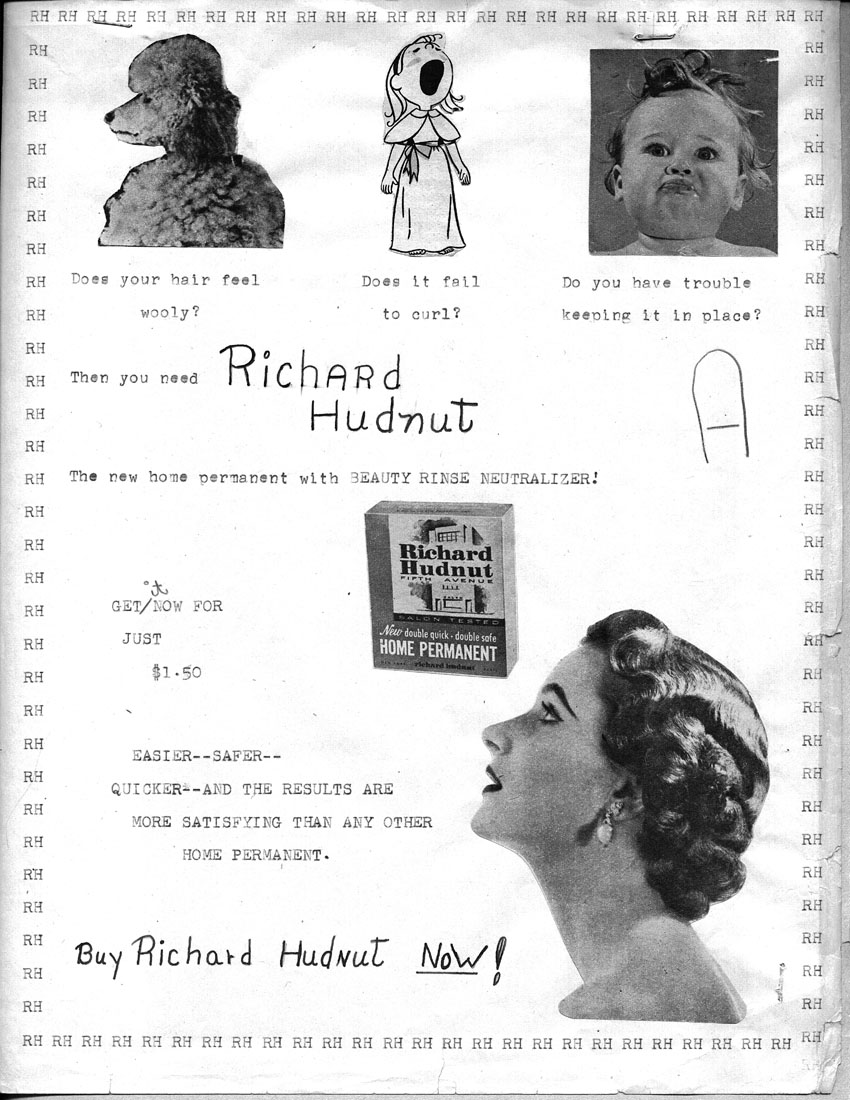 RH RH RH RH RH RH RH RH RH RH RH RH RH RH RH RH RH RH RH RH RH RH RH RH RH RH RH
RH RH
RH RH
RH RH
RH RH
RH RH
RH RH
RH RH
RH Does your hair feel Does it fail Do you have trouble RH
RH wooly? to curl? keeping it in place? RH
RH RH
RH Then you need Richard RH
RH Hudnut RH
RH RH
RH The new home permanent with BEAUTY RINSE NEUTRALIZER! RH
RH Richard RH
RH Hudnut RH
FIFTH AVENUE
RH RH
it
RH GET/NOW FOR SALON TESTED RH
New double quick · double safe
RH JUST HOME PERMANENT RH
richard hudnut
RH $1.50 RH
RH RH
RH RH
EASIER--SAFER--
RH RH
QUICKER--AND THE RESULTS ARE
RH RH
MORE SATISFYING THAN ANY OTHER
RH RH
HOME PERMANENT.
RH RH
RH RH
RH Buy Richard Hudnut NOW! RH
RH RH
RH RH
RH RH RH RH RH RH RH RH RH RH RH RH RH RH RH RH RH RH RH RH RH RH RH RH RH RH RH